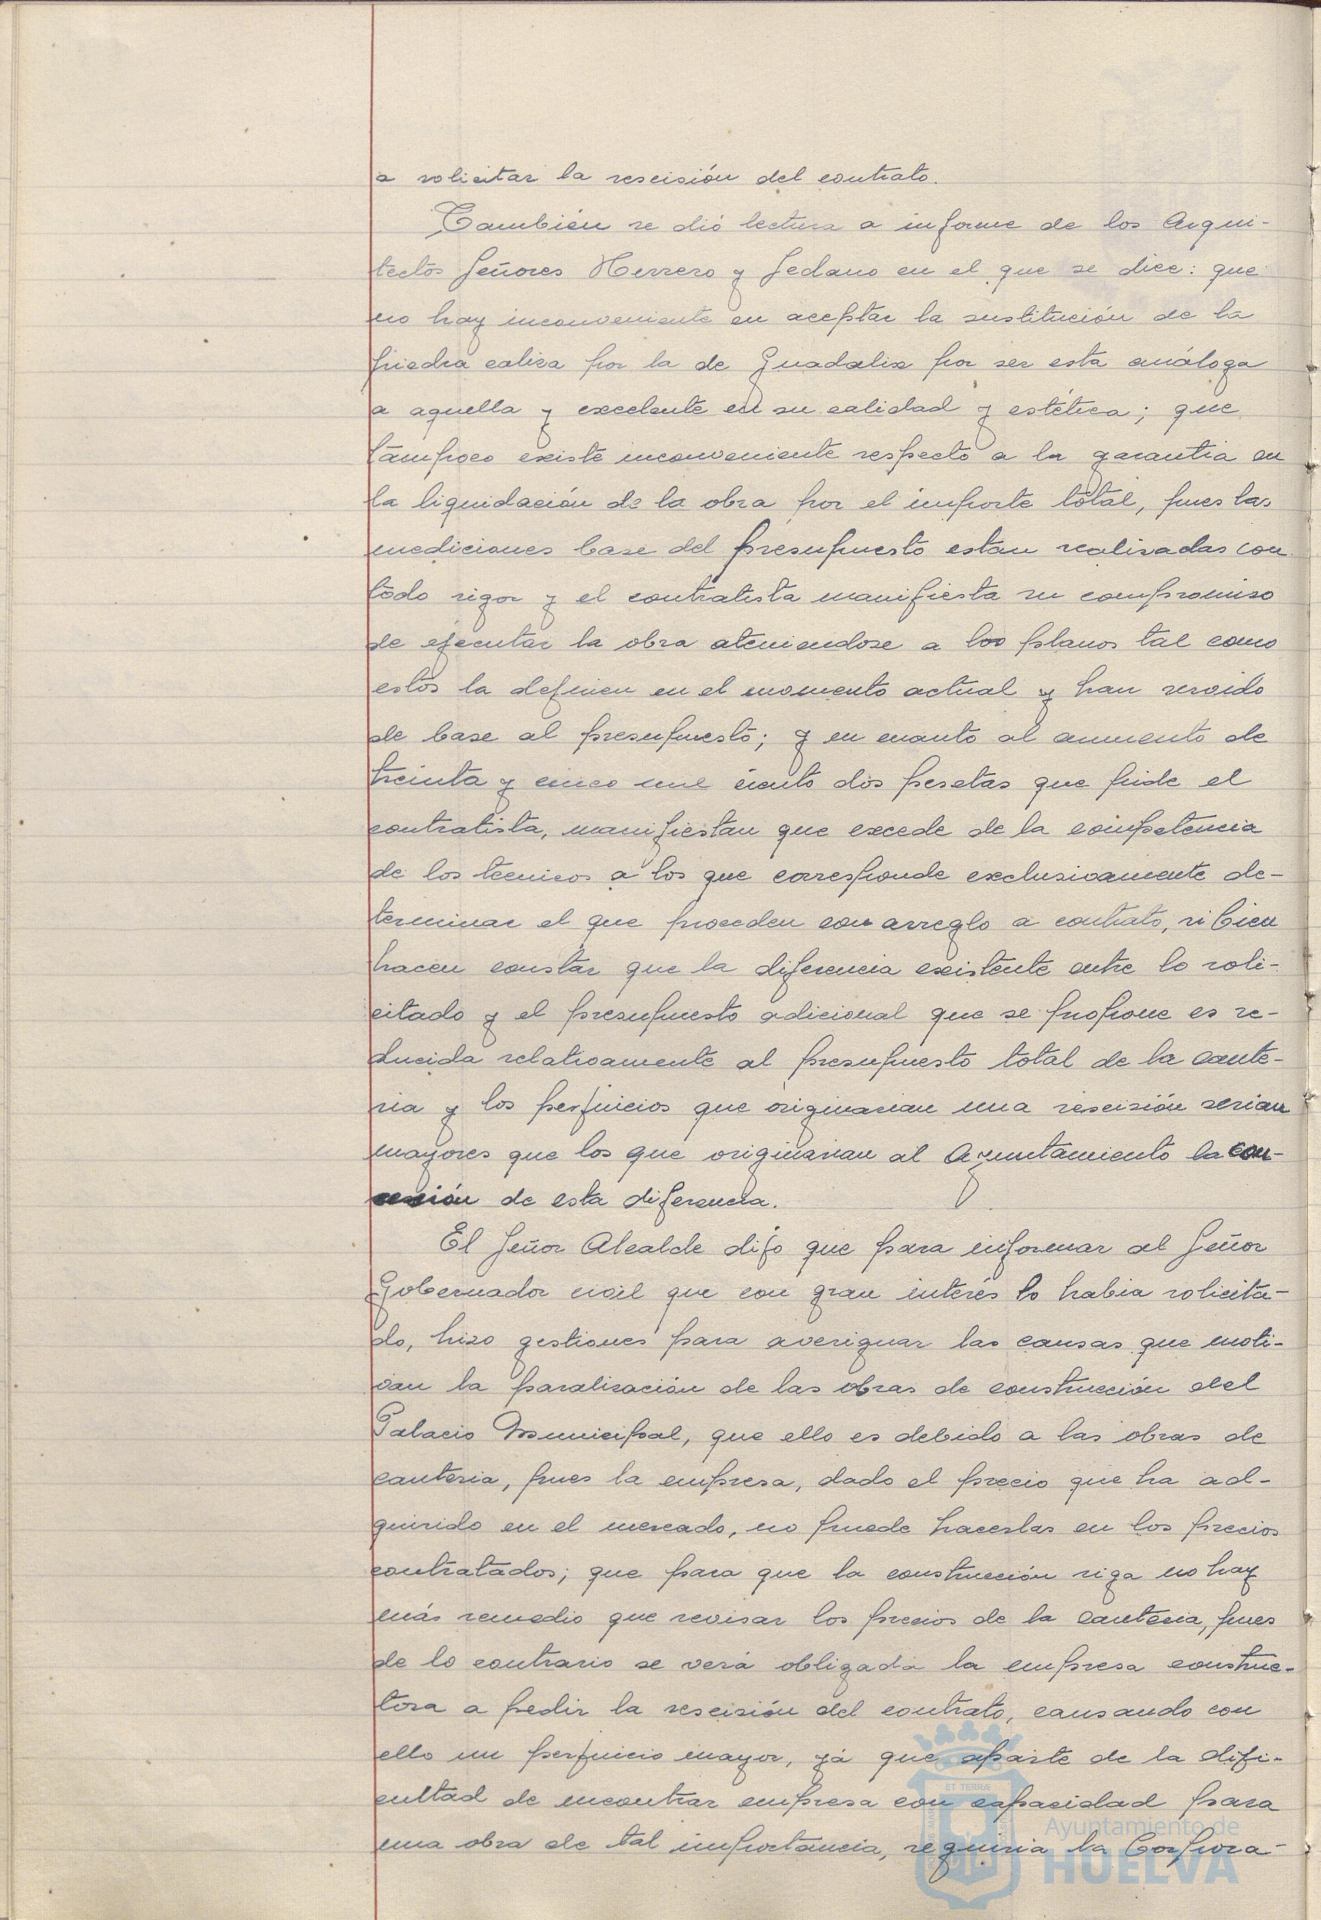 a solicitar la rescisión del contrato.
También se dió lectura a informe de los Arqui-
tectos Señores Herrero y Sedano en el que se dice: que
no hay inconveniente en aceptar la sustitución de la
piedra caliza por la de Guadalix por ser esta análoga
a aquella y excelente en su calidad y estética; que
tampoco existe inconveniente respecto a la garantia en
la liquidación de la obra por el importe total, pues las
mediciones base del presupuesto estan realizadas con
todo rigor y el contratista manifiesta su compromiso
de ejecutar la obra ateniendose a los planos tal como
estos la definen en el momento actual y han servido
de base al presupuesto; y en cuanto al aumento de
treinta y cinco mil ciento dos pesetas que pide el
contratista, manifiestan que excede de la competencia
de los tecnicos a los que corresponde exclusivamente de-
terminar el que proceden con arreglo a contrato, si bien
hacen constar que la diferencia existente entre lo soli-
citado y el presupuesto adicional que se propone es re-
ducida relativamente al presupuesto total de la cante-
ria y los perjuicios que originarian una rescisión serian
mayores que los que originarian al Ayuntamiento la con-
cesión de esta diferencia.
El Señor Alcalde dijo que para informar al Señor
Gobernador civil que con gran interés lo habia solicita-
do, hizo gestiones para averiguar las causas que moti-
van la paralización de las obras de construcción del
Palacio Municipal, que ello es debido a las obras de
canteria, pues la empresa, dado el precio que ha ad-
quirido en el mercado, no puede hacerlas en los precios
contratados; que para que la construcción siga no hay
más remedio que revisar los precios de la canteria, pues
de lo contrario se verá obligada la empresa construc-
tora a pedir la rescisión del contrato, causando con
ello un perjuicio mayor, yá que aparte de la difi-
cultad de encontrar empresa con capacidad para
una obra de tal importancia, seguiria la Corpora-
ET TERRÆ
Ayuntamiento de
HUELVA